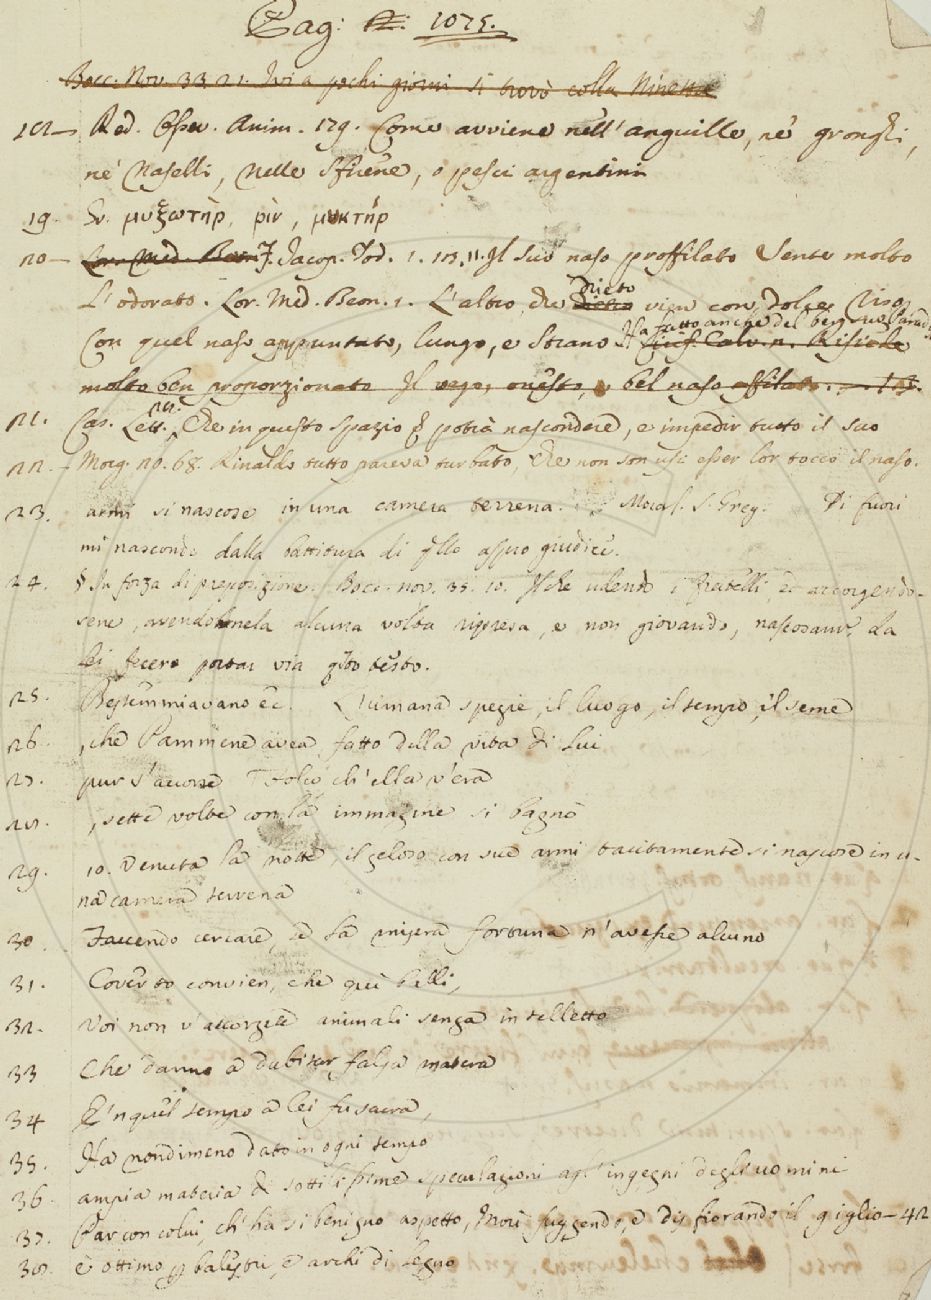 Pag: 1075.
Bocc. Nov. 33. 21. Ivi a pochi giorni si trovò colla Ninetta
Red. Osser. Anim. 179. Come avviene nell'anguille, ne' gronghi,
ne' Naselli, nelle Sfirene, o pesci argentini
19. Gr. μυξωτὴρ, ῥὶν, μυκτήρ
20 Jacop. Tod. Il suo naso proffilato Sente molto
L'odorato. Lor. Med. Beon. 1. L'altro, che drieto vien con dolce riso
Con quel naso appuntato, lungo, e strano
molto ben proporzionato Il vago, onesto, e bel naso affilato.
21. Cas. Lett. Che in questo spazio potrà nascondere, e impedir tutto il suo
22. Morg. 20. 68. Rinaldo tutto pareva turbato, Che non son usi esser lor tocco il naso.
23. armi si nascose in una camera terrena. Moral. S. Greg. Di fuori
mi nascondo dalla battitura di aspro giudice.
24. § In forza di preposizione. Bocc. nov. 35. 10. udendo i fratelli, ed accorgendo-
sene, avendonela alcuna volta ripresa, e non giovando, nascosam. da
lei fecero portar via testo.
25. Bestemmiavano ec. L'umana spezie, il luogo, il tempo, il seme
26. , che l'ammenne avea fatto della vita di lui
27. pur s'accorse ch'ella v'era
28. , sette volte con la immagine si bagnò
29. 10. Venuta la notte, il geloso con sue armi tacitamente si nascose in u-
na camera terrena
30. Faccendo cercare, se la misera fortuna n'avesse alcuno
31. Coverto convien, che quì balli,
32. Voi non v'accorgete animali senza intelletto
33 Che danno a dubitar falsa matera
34 E'n quel tempo a lei fu sacra,
35. Ha nondimeno dato in ogni tempo
36. ampia materia di sottilissime speculazioni agl'ingegni degli uomini
37. Par con colui, ch'ha sì benigno aspetto, Morì fuggendo, e disfiorando il giglio - 42
38. è ottimo balestri, e archi di legno